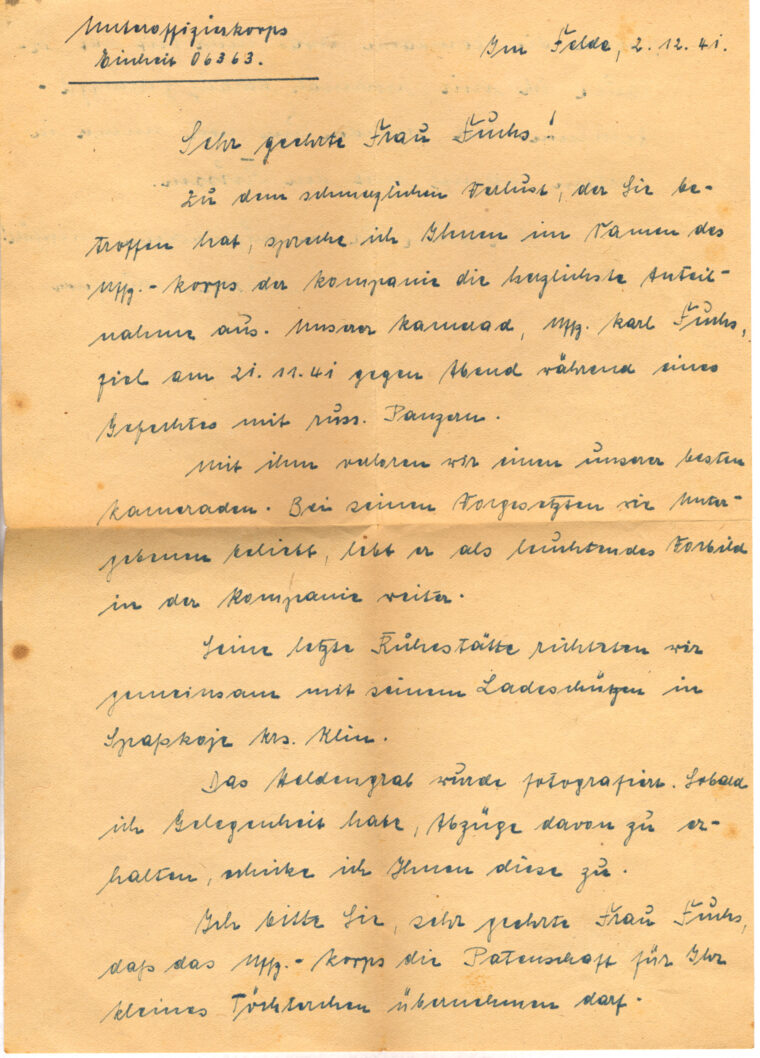 Unteroffizierkorps
Einheit 06363.
Im Felde, 2.12.41.
Sehr geehrte Frau Fuchs!
Zu dem schmerzlichen Verlust, der Sie be-
troffen hat, spreche ich Ihnen im Namen des
Uffz.-Korps der Kompanie die herzlichste Anteil-
nahme aus. Unserer Kamerad, Uffz. Karl Fuchs,
fiel am 21.11.41 gegen Abend während eines
Gefechtes mit russ. Panzern.
Mit ihm verloren wir einen unserer besten
Kameraden. Bei seinen Vorgesetzten wie Unter-
gebenen beliebt, lebt er als leuchtendes Vorbild
in der Kompanie weiter.
Seine letzte Ruhestätte richteten wir
gemeinsam mit seinem Ladeschützen in
Spaßkoje Krs. Klin.
Das Heldengrab wurde fotografiert. Sobald
ich Gelegenheit habe, Abzüge davon zu er-
halten, schicke ich Ihnen diese zu.
Ich bitte Sie, sehr geehrte Frau Fuchs,
daß das Uffz.-Korps die Patenschaft für Ihr
kleines Töchterchen übernehmen darf.